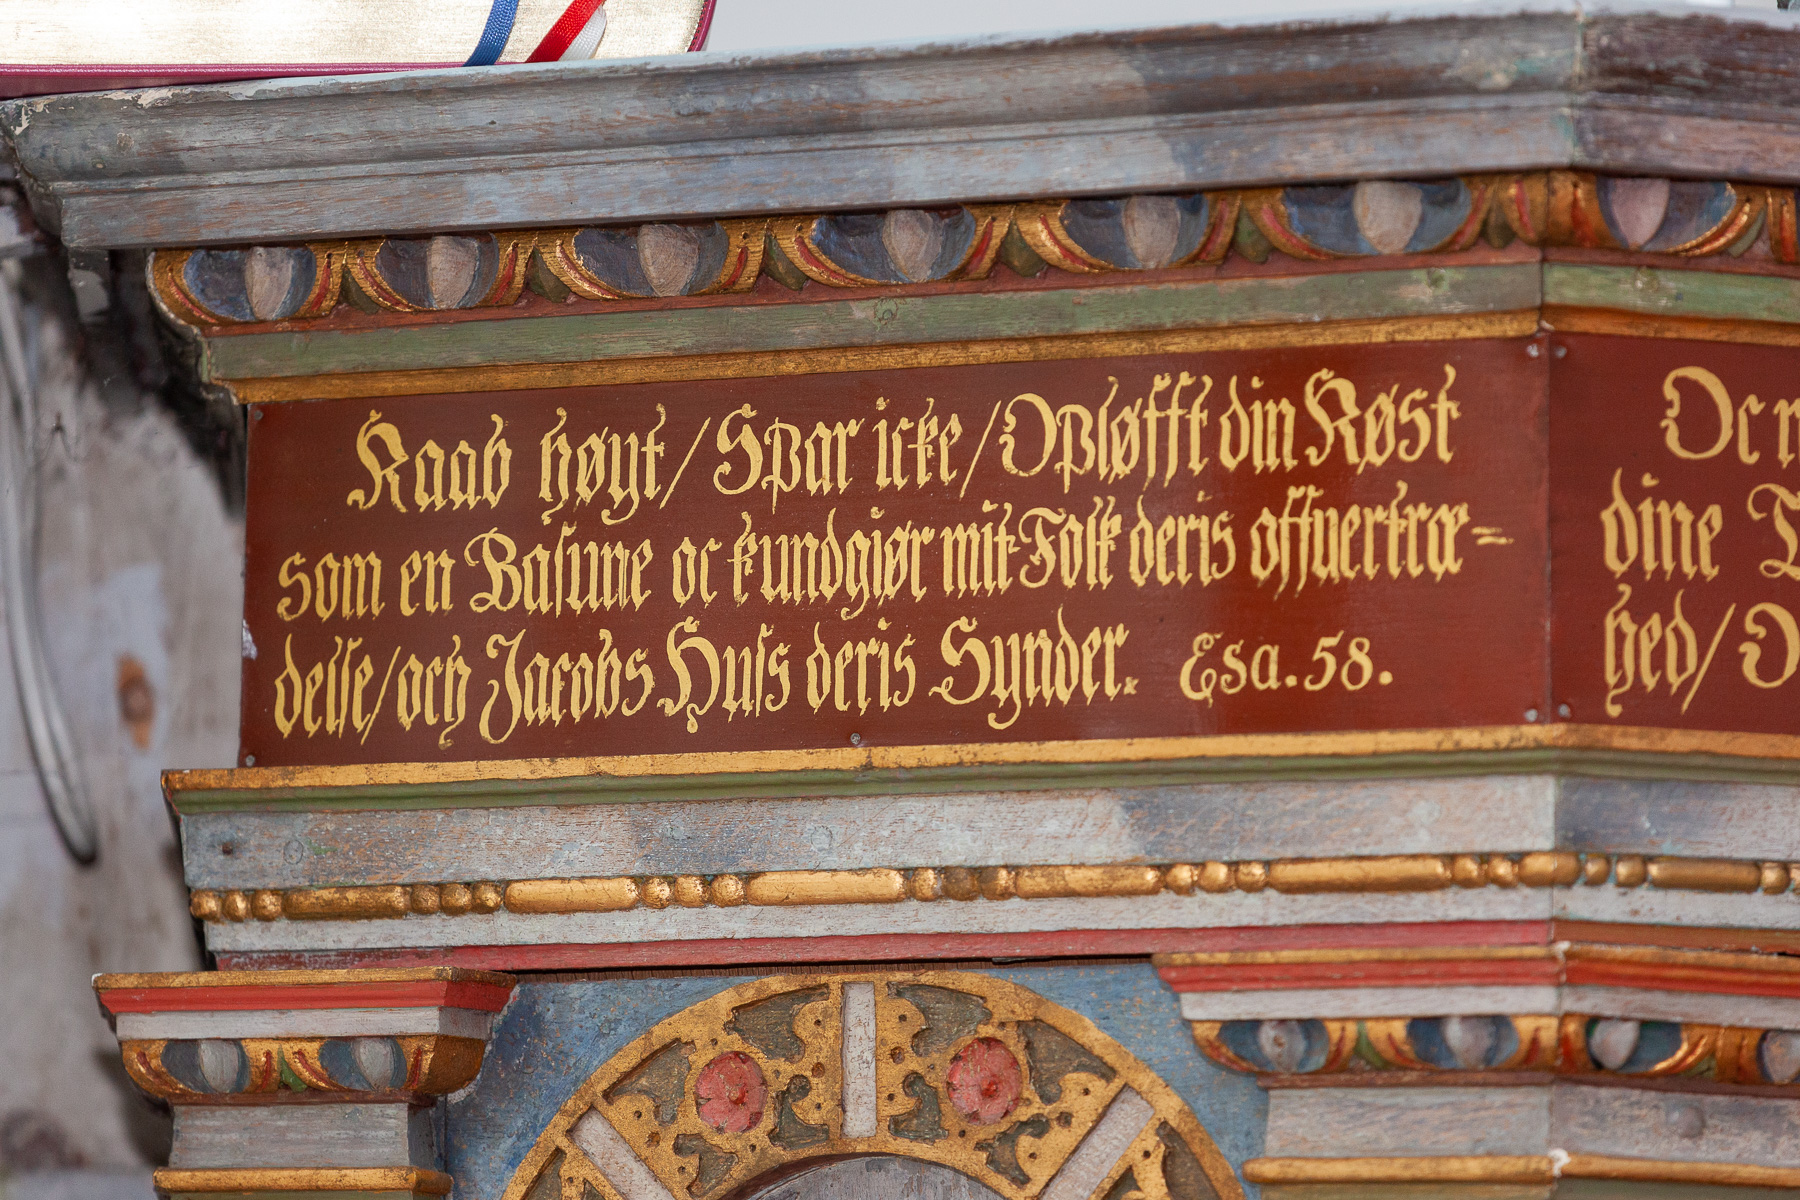 Raab høyt/Spar icke/Opløfft din Røst
som en Basune oc kundgiør mit Folk deris offuertræ=
delse/och Jacobs Huss deris Synder. Esa.58.
Oc
dine
hed/